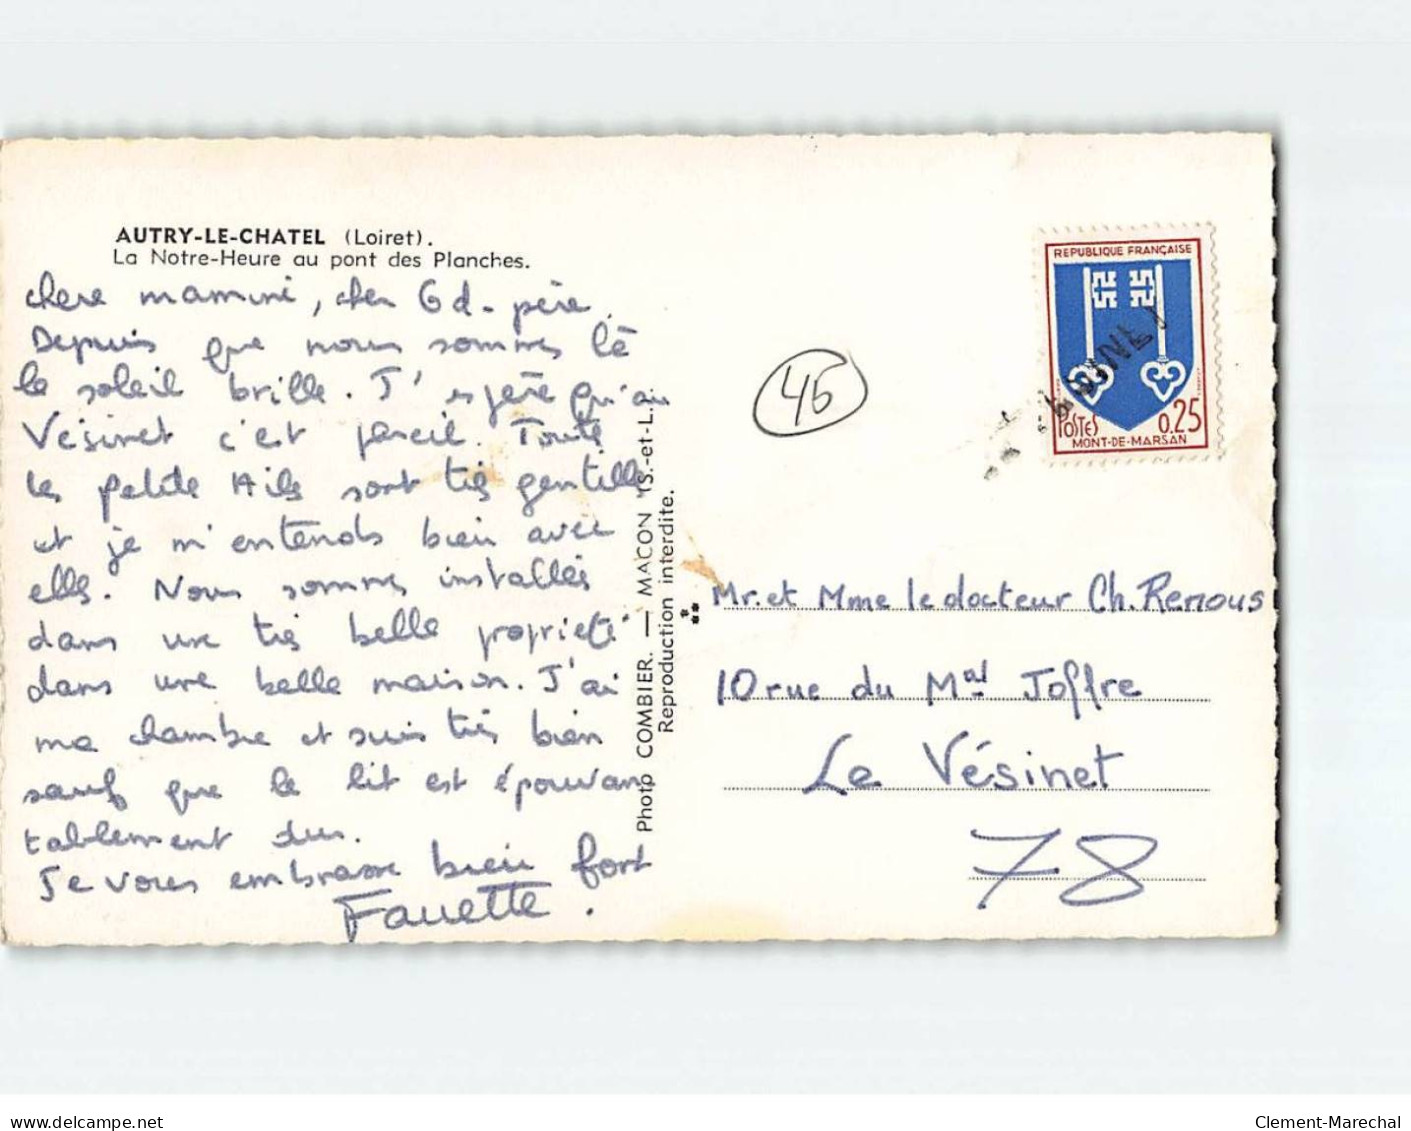 AUTRY-LE-CHATEL (Loiret).
La Notre-Heure au pont des Planches.
chere mamine, cher Gd-père.
Depuis que nous sommes là
le soleil brille. J'espère qu'au
Vésinet c'est pareil. Toute
les petite Ails sont très gentille
et je m'entends bien avec
elles. Nous sommes installés
dans une très belle propriété
dans une belle maison. J'ai
ma chambre et suis très bien
sauf que le lit est épouvan
tablement dur.
Je vous embrasse bien fort
Photo COMBIER. — MACON (S.-et-L.)
Reproduction interdite.
45
REPUBLIQUE FRANÇAISE
POSTES 0.25
MONT-DE-MARSAN
Mr. et Mme le docteur Ch. Renous
10 rue du Mal Joffre
Le Vésinet
78
www.delcampe.net
Clement-Marechal